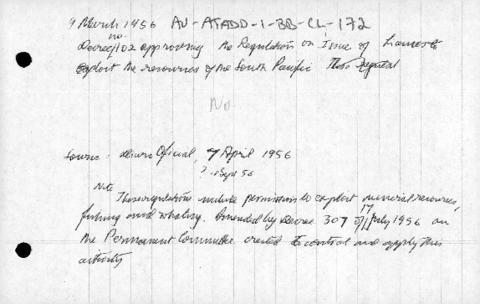 9 March 1956 AU-ATADD-1-BB-CL-172
Decree no 102 approving the Regulation on Issue of Licences to
exploit the resources of the South Pacific This Repeal
No
Source: Diario Oficial, 7 April 1956
? Sept 56
Note
These regulations include permission to exploit mineral resources,
fishing and whaling. Amended by Decree 307 of 17 July 1956 on
the Permanent Committee created to control and apply this
activity